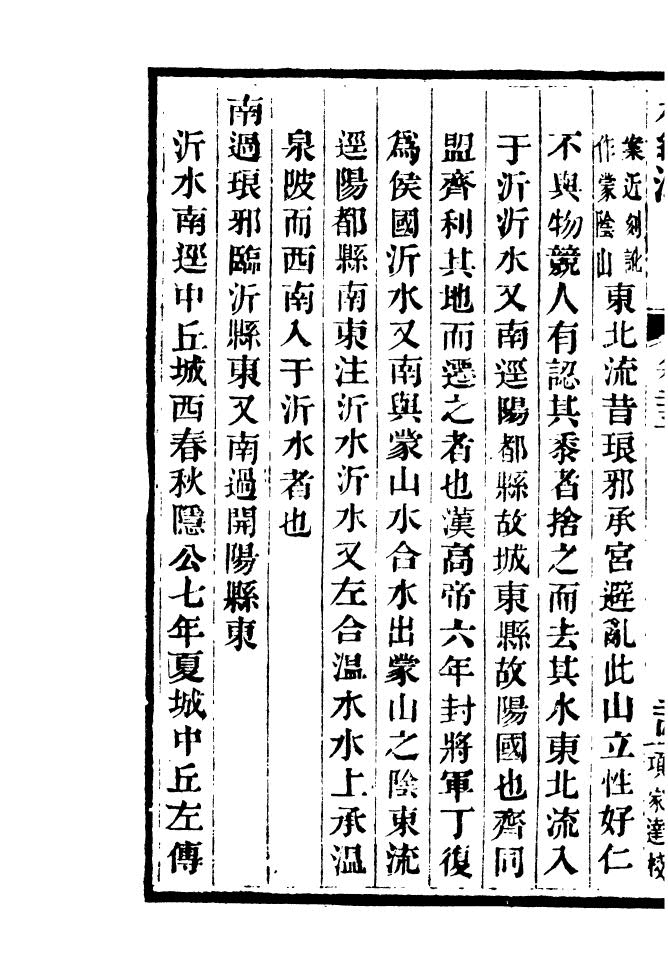 案近刻訛
作蒙陰山
東北流昔琅邪承宮避亂此山立性好仁
不與物競人有認其黍者捨之而去其水東北流入
于沂沂水又南逕陽都縣故城東縣故陽國也齊同
盟齊利其地而遷之者也漢高帝六年封將軍丁復
爲侯國沂水又南與蒙山水合水出蒙山之陰東流
逕陽都縣南東注沂水沂水又左合溫水水上承溫
泉陂而西南入于沂水者也
南過琅邪臨沂縣東又南過開陽縣東
沂水南逕中丘城西春秋隱公七年夏城中丘左傳
項家達校